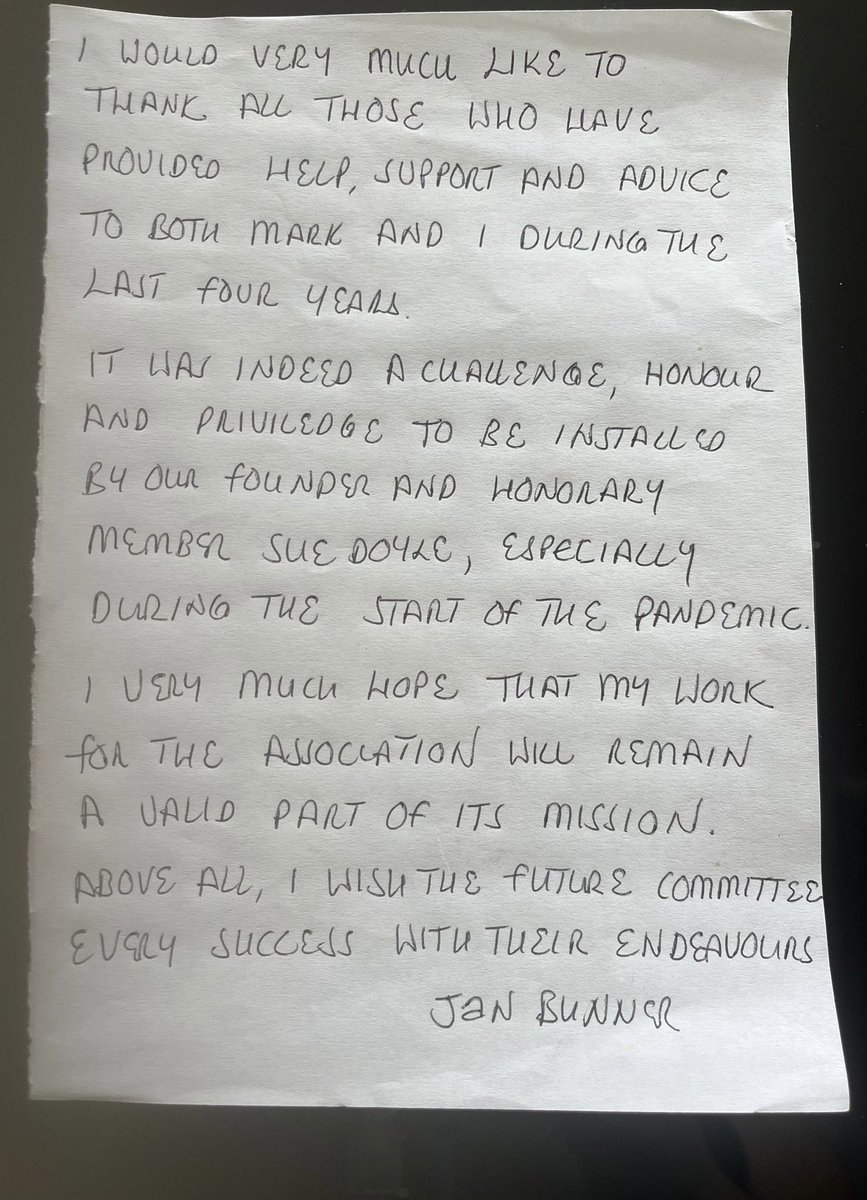 I WOULD VERY MUCH LIKE TO
THANK ALL THOSE WHO HAVE
PROVIDED HELP, SUPPORT AND ADVICE
TO BOTH MARK AND I DURING THE
LAST FOUR YEARS.
IT WAS INDEED A CHALLENGE, HONOUR
AND PRIVILEDGE TO BE INSTALLED
BY OUR FOUNDER AND HONORARY
MEMBER SUE DOYLE, ESPECIALLY
DURING THE START OF THE PANDEMIC.
I VERY MUCH HOPE THAT MY WORK
FOR THE ASSOCIATION WILL REMAIN
A VALID PART OF ITS MISSION.
ABOVE ALL, I WISH THE FUTURE COMMITTEE
EVERY SUCCESS WITH THEIR ENDEAVOURS
JAN BUNNER